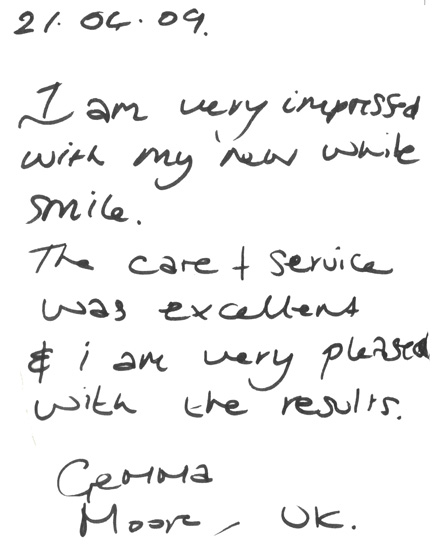 21.04.09.
I am very impressed
with my new white
smile.
The care + service
was excellent
& i am very pleased
with the results.
Gemma
Moore, UK.